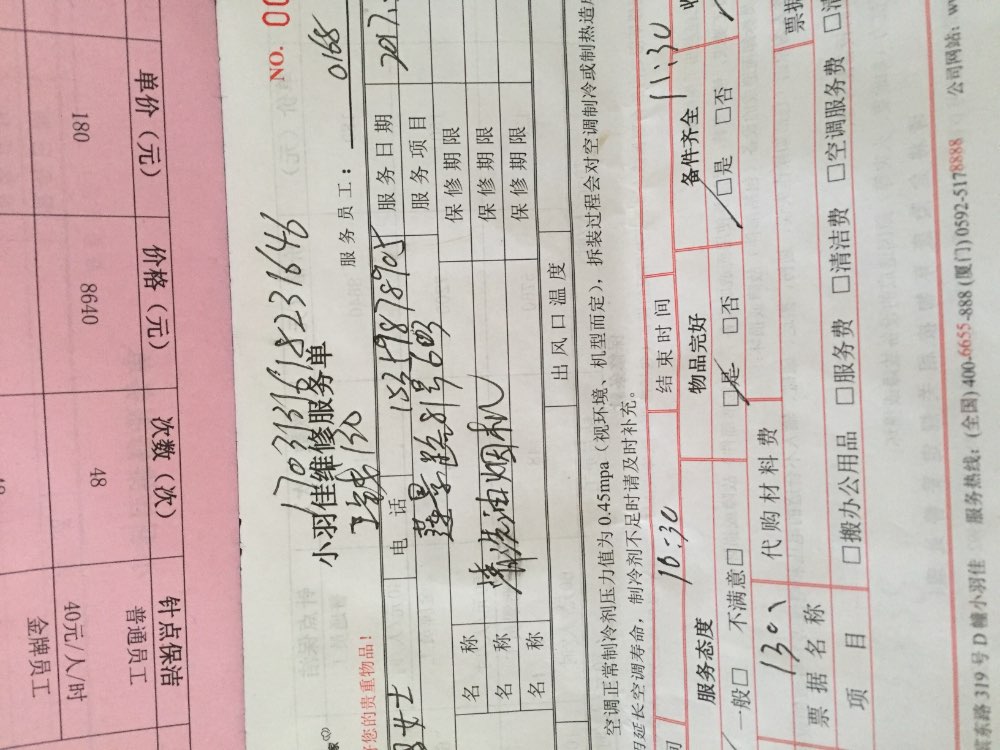 单价（元） 价格（元） 次数（次） 针点保洁
普通员工
180 8640 48 40元/人/时
金牌员工
NO. 00
703131618231646
小羽佳维修服务单
服务员工： 0168
工费130
好您的贵重物品！
女士 电 话 15259878905 服务日期 2017.
服务项目
名 称 清洗油烟机 保修期限
名 称 保修期限
名 称 保修期限
出风口温度
空调正常制冷剂压力值为 0.45mpa（视环境、机型而定），拆装过程会对空调制冷或制热造成
延长空调寿命，制冷剂不足时请及时补充。
间 10:30 结束时间 11:30 收
服务态度 物品完好 备件齐全
一般□ 不满意□ □是 □否 □是 □否
130 代购材料费
票据名称 票据
项 目 □搬办公用品 □服务费 □清洁费 □空调服务费 □清
东路 319 号 D 幢小羽佳 服务热线：(全国) 400-6655-888 (厦门) 0592-5178888 公司网站：w